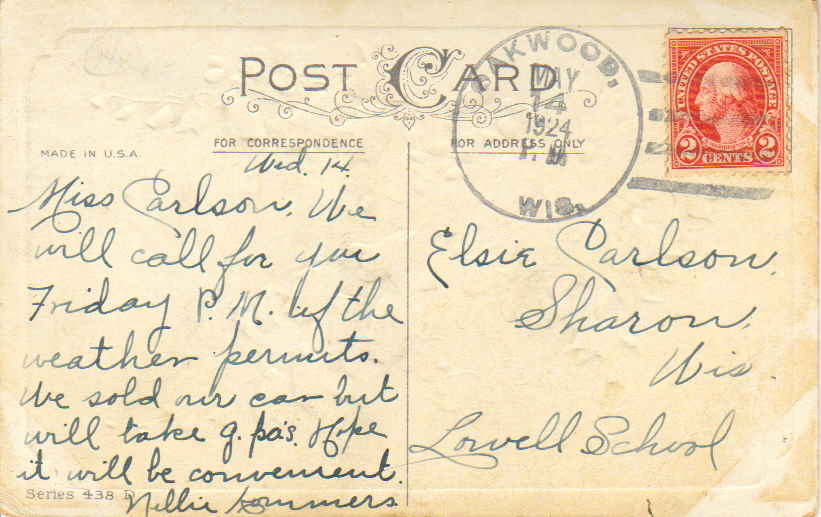 POST CARD
OAKWOOD,
MAY
14
1924
WIS.
UNITED STATES POSTAGE
2 CENTS 2
MADE IN U.S.A.
FOR CORRESPONDENCE
FOR ADDRESS ONLY
Wed. 14.
Miss Carlson, We
will call for you
Friday P.M. if the
weather permits.
We sold our car but
will take g. pa's. Hope
it will be convenient.
Nellie Sommers
Series 438 D
Elsie Carlson.
Sharon,
Wis.
Lowell School